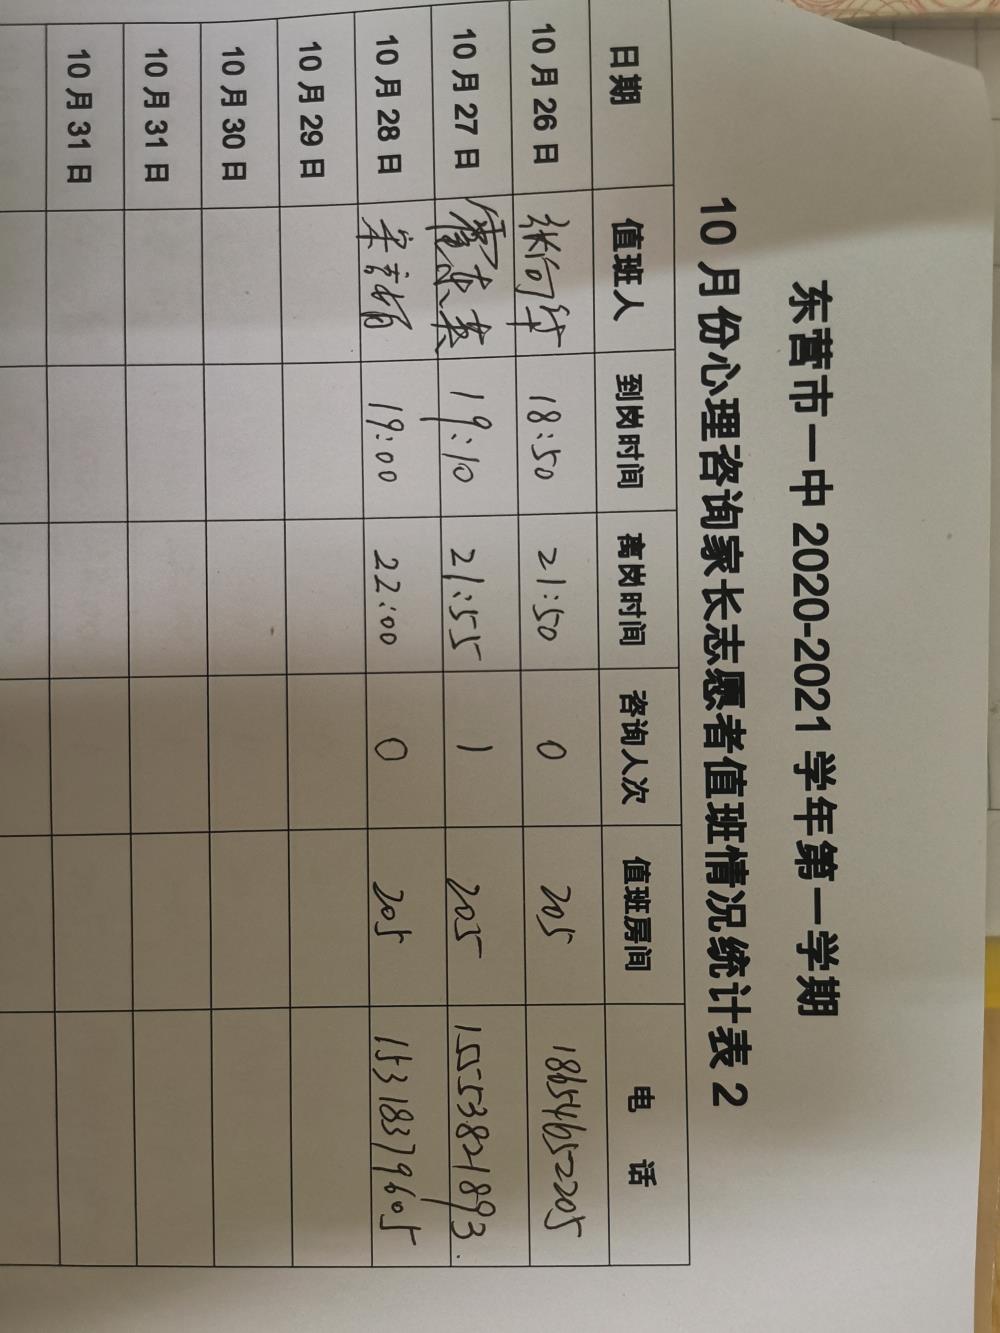 东营市一中 2020-2021 学年第一学期
10 月份心理咨询家长志愿者值班情况统计表 2
日期 值班人 到岗时间 离岗时间 咨询人次 值班房间 电 话
10 月 26 日 张向华 18:50 21:50 0 205 18654652205
10 月 27 日 19:10 21:55 1 205 15553821893.
10 月 28 日 19:00 22:00 0 205 15318379605
10 月 29 日
10 月 30 日
10 月 31 日
10 月 31 日